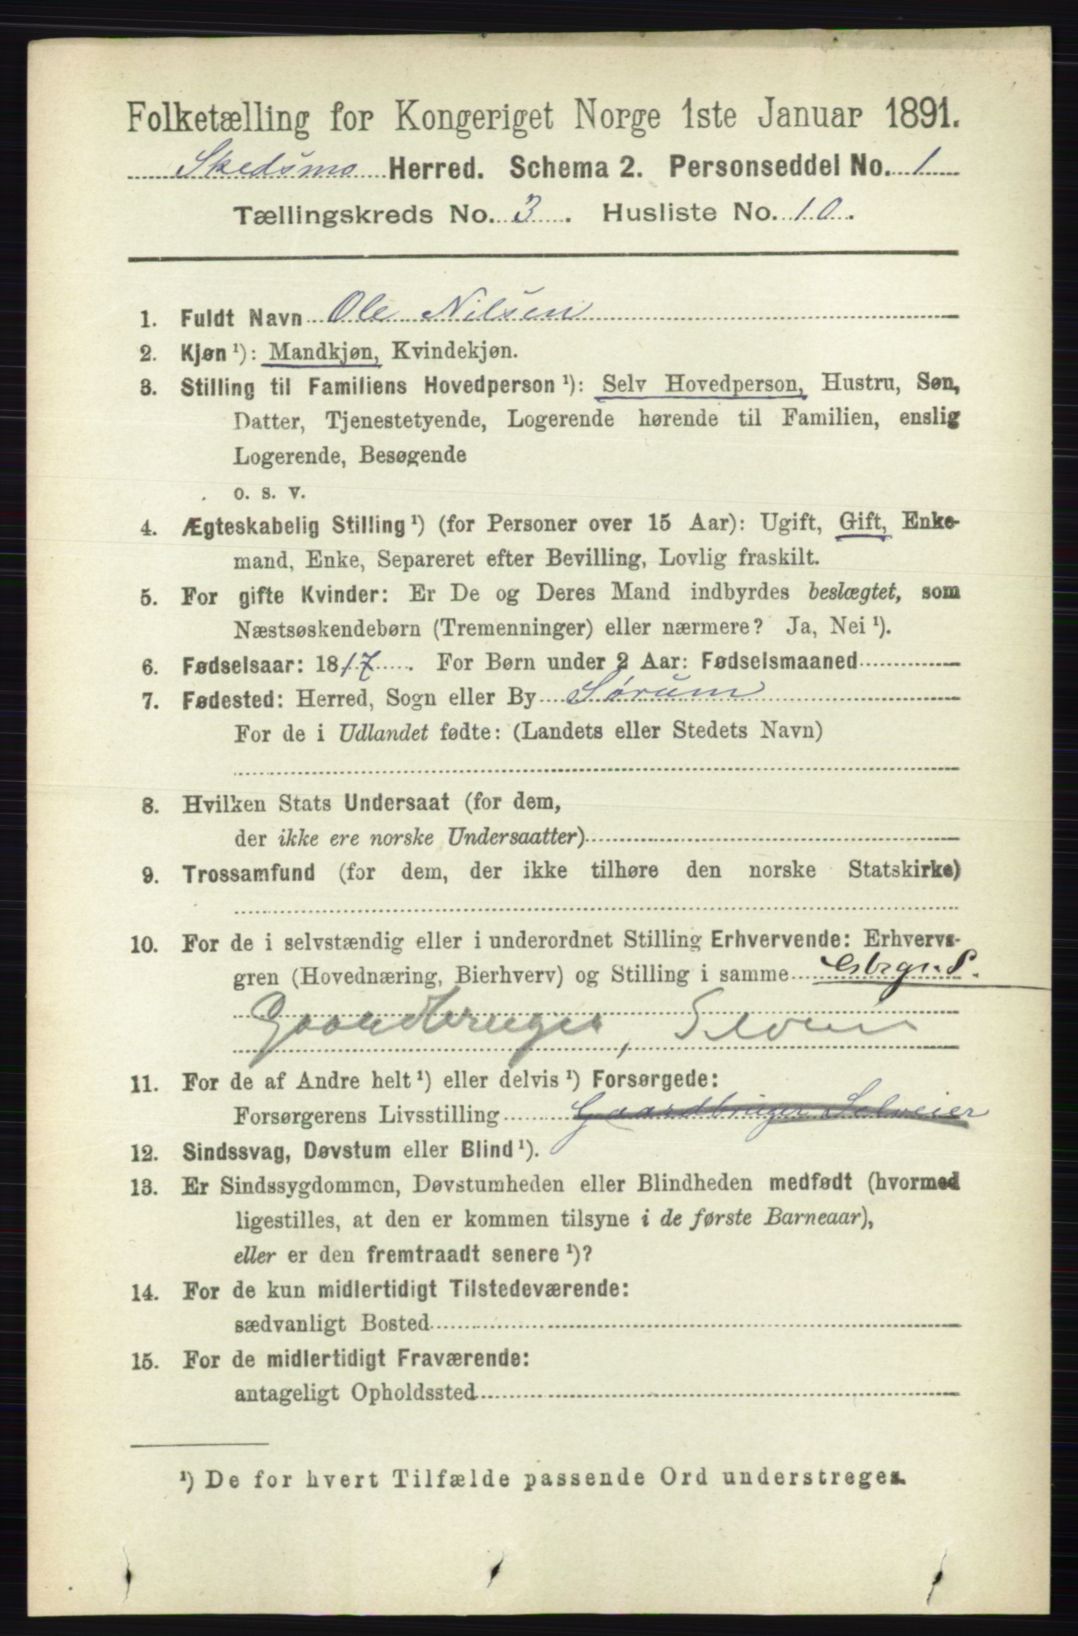 Folketælling for Kongeriget Norge 1ste Januar 1891.
Skedsmo Herred. Schema 2. Personseddel No. 1
Tællingskreds No. 3. Husliste No. 10.
1. Fuldt Navn Ole Nilsen
2. Kjøn ¹): Mandkjøn, Kvindekjøn.
3. Stilling til Familiens Hovedperson ¹): Selv Hovedperson, Hustru, Søn,
Datter, Tjenestetyende, Logerende hørende til Familien, enslig
Logerende, Besøgende
o. s. v.
4. Ægteskabelig Stilling ¹) (for Personer over 15 Aar): Ugift, Gift, Enke-
mand, Enke, Separeret efter Bevilling, Lovlig fraskilt.
5. For gifte Kvinder: Er De og Deres Mand indbyrdes beslægtet, som
Næstsøskendebørn (Tremenninger) eller nærmere? Ja, Nei ¹).
6. Fødselsaar: 1817. For Børn under 2 Aar: Fødselsmaaned
7. Fødested: Herred, Sogn eller By Sørum
For de i Udlandet fødte: (Landets eller Stedets Navn)
8. Hvilken Stats Undersaat (for dem,
der ikke ere norske Undersaatter)
9. Trossamfund (for dem, der ikke tilhøre den norske Statskirke)
10. For de i selvstændig eller i underordnet Stilling Erhvervende: Erhvervs-
gren (Hovednæring, Bierhverv) og Stilling i samme Gbrgr. S.
Gaardbruger, Selveier
11. For de af Andre helt ¹) eller delvis ¹) Forsørgede:
Forsørgerens Livsstilling Gaardbruger Selveier
12. Sindssvag, Døvstum eller Blind ¹).
13. Er Sindssygdommen, Døvstumheden eller Blindheden medfødt (hvormed
ligestilles, at den er kommen tilsyne i de første Barneaar),
eller er den fremtraadt senere ¹)?
14. For de kun midlertidigt Tilstedeværende:
sædvanligt Bosted
15. For de midlertidigt Fraværende:
antageligt Opholdssted
¹) De for hvert Tilfælde passende Ord understreges.